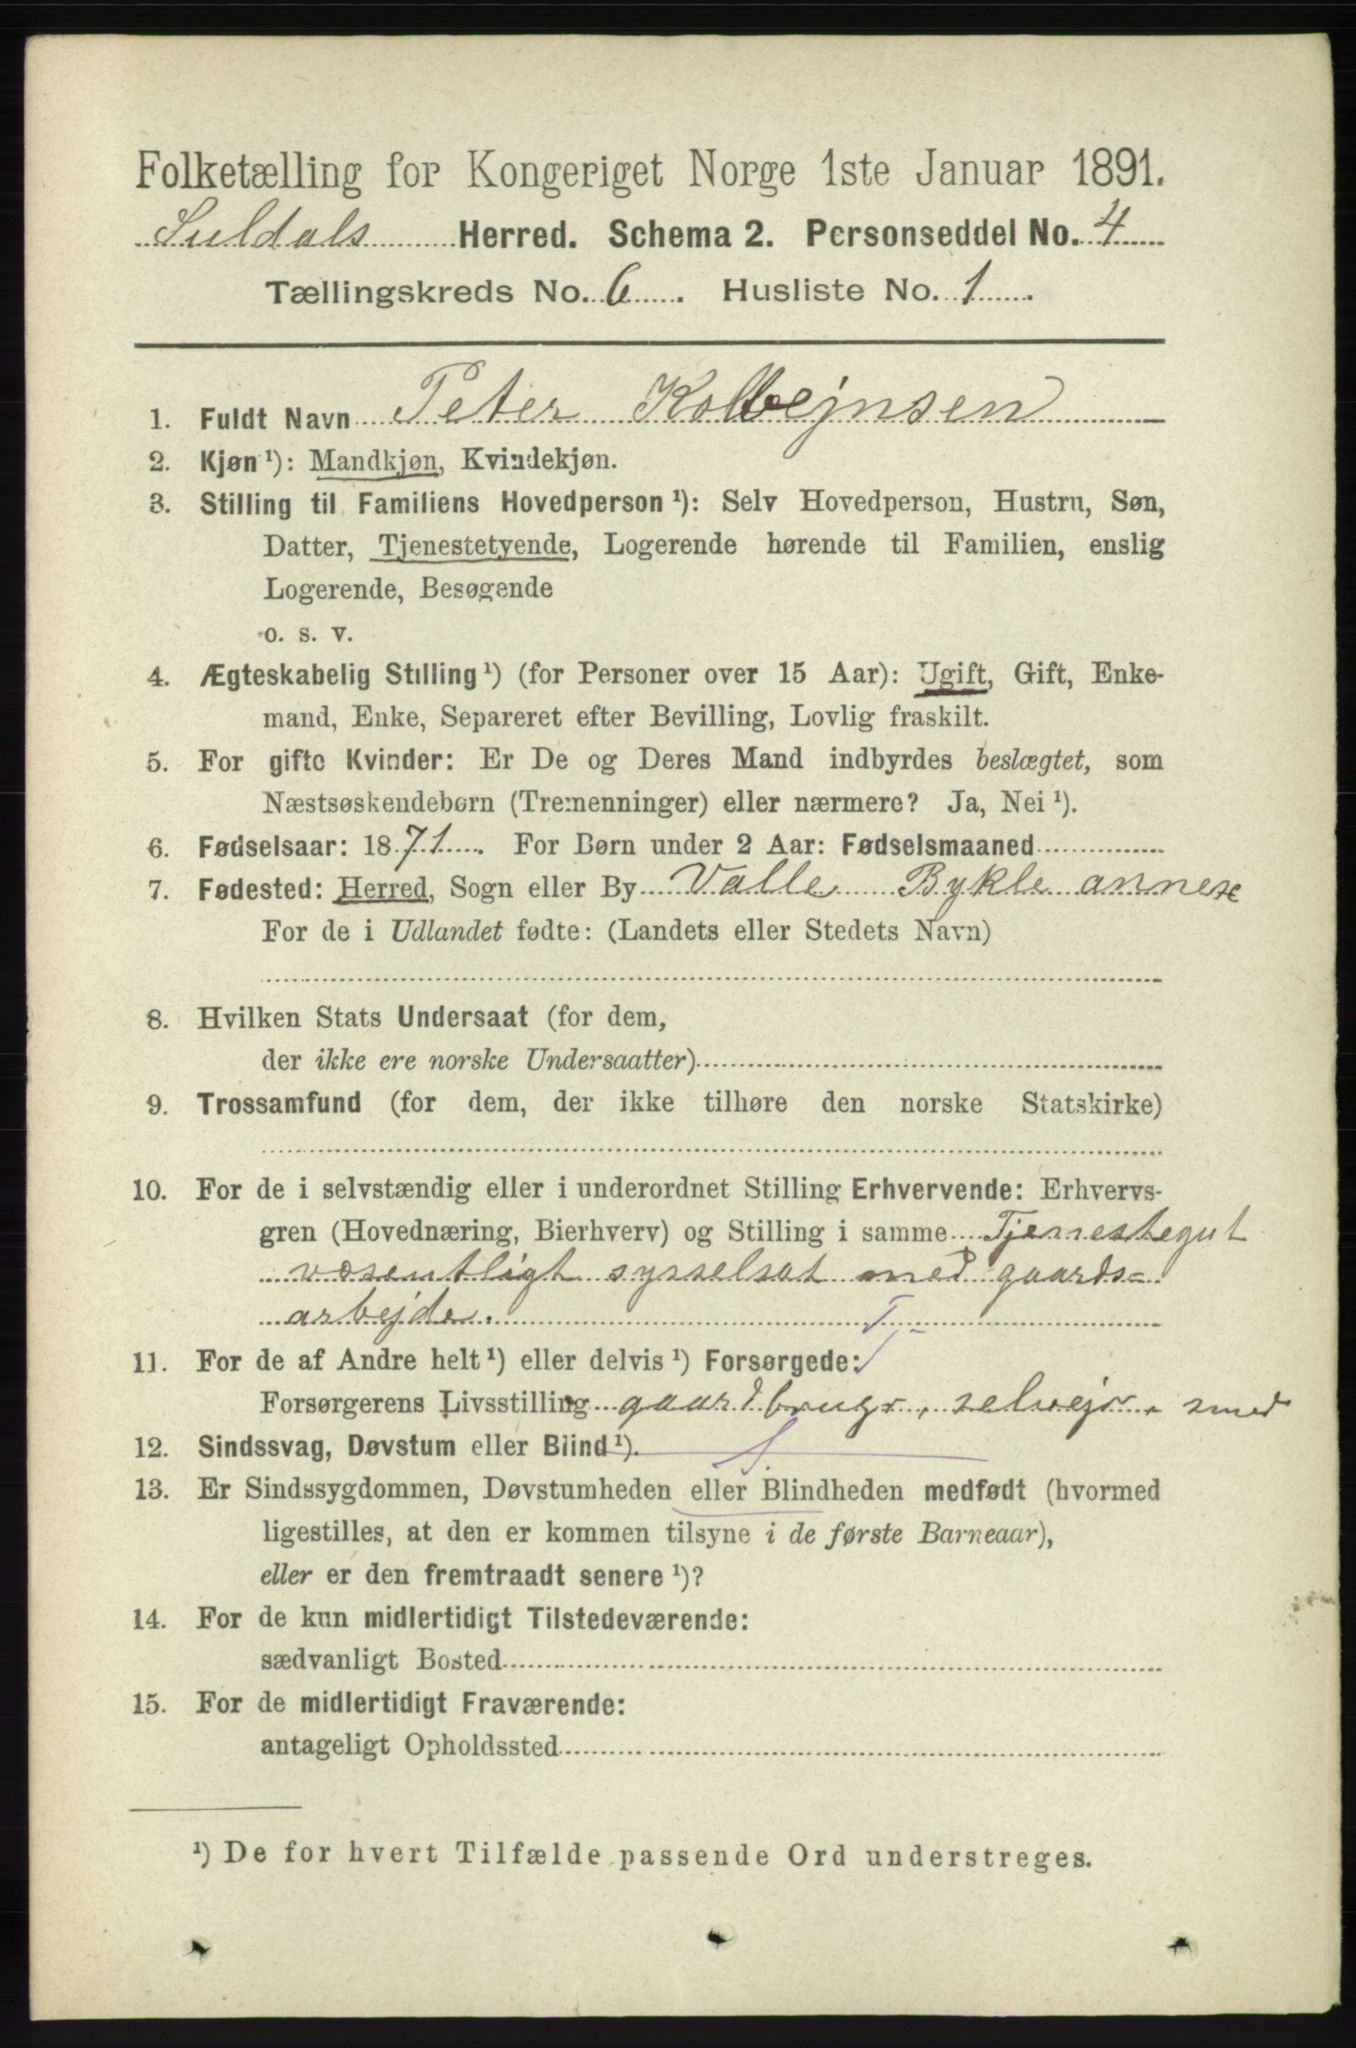 Folketælling for Kongeriget Norge 1ste Januar 1891.
Suldals Herred. Schema 2. Personseddel No. 4
Tællingskreds No. 6. Husliste No. 1.
1. Fuldt Navn Peter Kolbejnsen
2. Kjøn ¹): Mandkjøn, Kvindekjøn.
3. Stilling til Familiens Hovedperson ¹): Selv Hovedperson, Hustru, Søn,
Datter, Tjenestetyende, Logerende hørende til Familien, enslig
Logerende, Besøgende
o. s. v.
4. Ægteskabelig Stilling ¹) (for Personer over 15 Aar): Ugift, Gift, Enke-
mand, Enke, Separeret efter Bevilling, Lovlig fraskilt.
5. For gifte Kvinder: Er De og Deres Mand indbyrdes beslægtet, som
Næstsøskendebørn (Tremenninger) eller nærmere? Ja, Nei ¹).
6. Fødselsaar: 1871. For Børn under 2 Aar: Fødselsmaaned
7. Fødested: Herred, Sogn eller By Valle Bykle annex
For de i Udlandet fødte: (Landets eller Stedets Navn)
8. Hvilken Stats Undersaat (for dem,
der ikke ere norske Undersaatter)
9. Trossamfund (for dem, der ikke tilhøre den norske Statskirke)
10. For de i selvstændig eller i underordnet Stilling Erhvervende: Erhvervs-
gren (Hovednæring, Bierhverv) og Stilling i samme Tjenestegut
væsentligt sysselsat med gaards-
arbejde. T
11. For de af Andre helt ¹) eller delvis ¹) Forsørgede: T
Forsørgerens Livsstilling gaardbrugr, selvejr, smed
12. Sindssvag, Døvstum eller Blind ¹).
13. Er Sindssygdommen, Døvstumheden eller Blindheden medfødt (hvormed
ligestilles, at den er kommen tilsyne i de første Barneaar),
eller er den fremtraadt senere ¹)?
14. For de kun midlertidigt Tilstedeværende:
sædvanligt Bosted
15. For de midlertidigt Fraværende:
antageligt Opholdssted
¹) De for hvert Tilfælde passende Ord understreges.